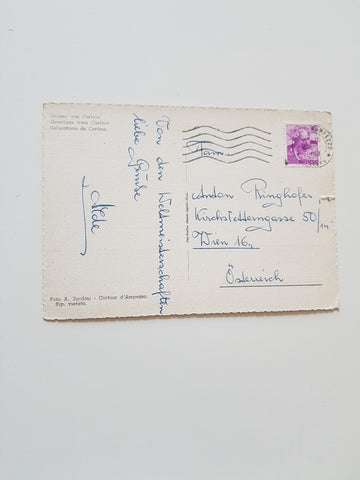 Grüsse aus Cortina
Greetings from Cortina
Salutations de Cortina
Von den Weltmeisterschaften
liebe Grüße
Fam.
Anton Ringhofer
Kirchstetterngasse 50/14
Wien 16.,
Österreich
Foto A. Zardini - Cortina d'Ampezzo.
Rip. vietata.